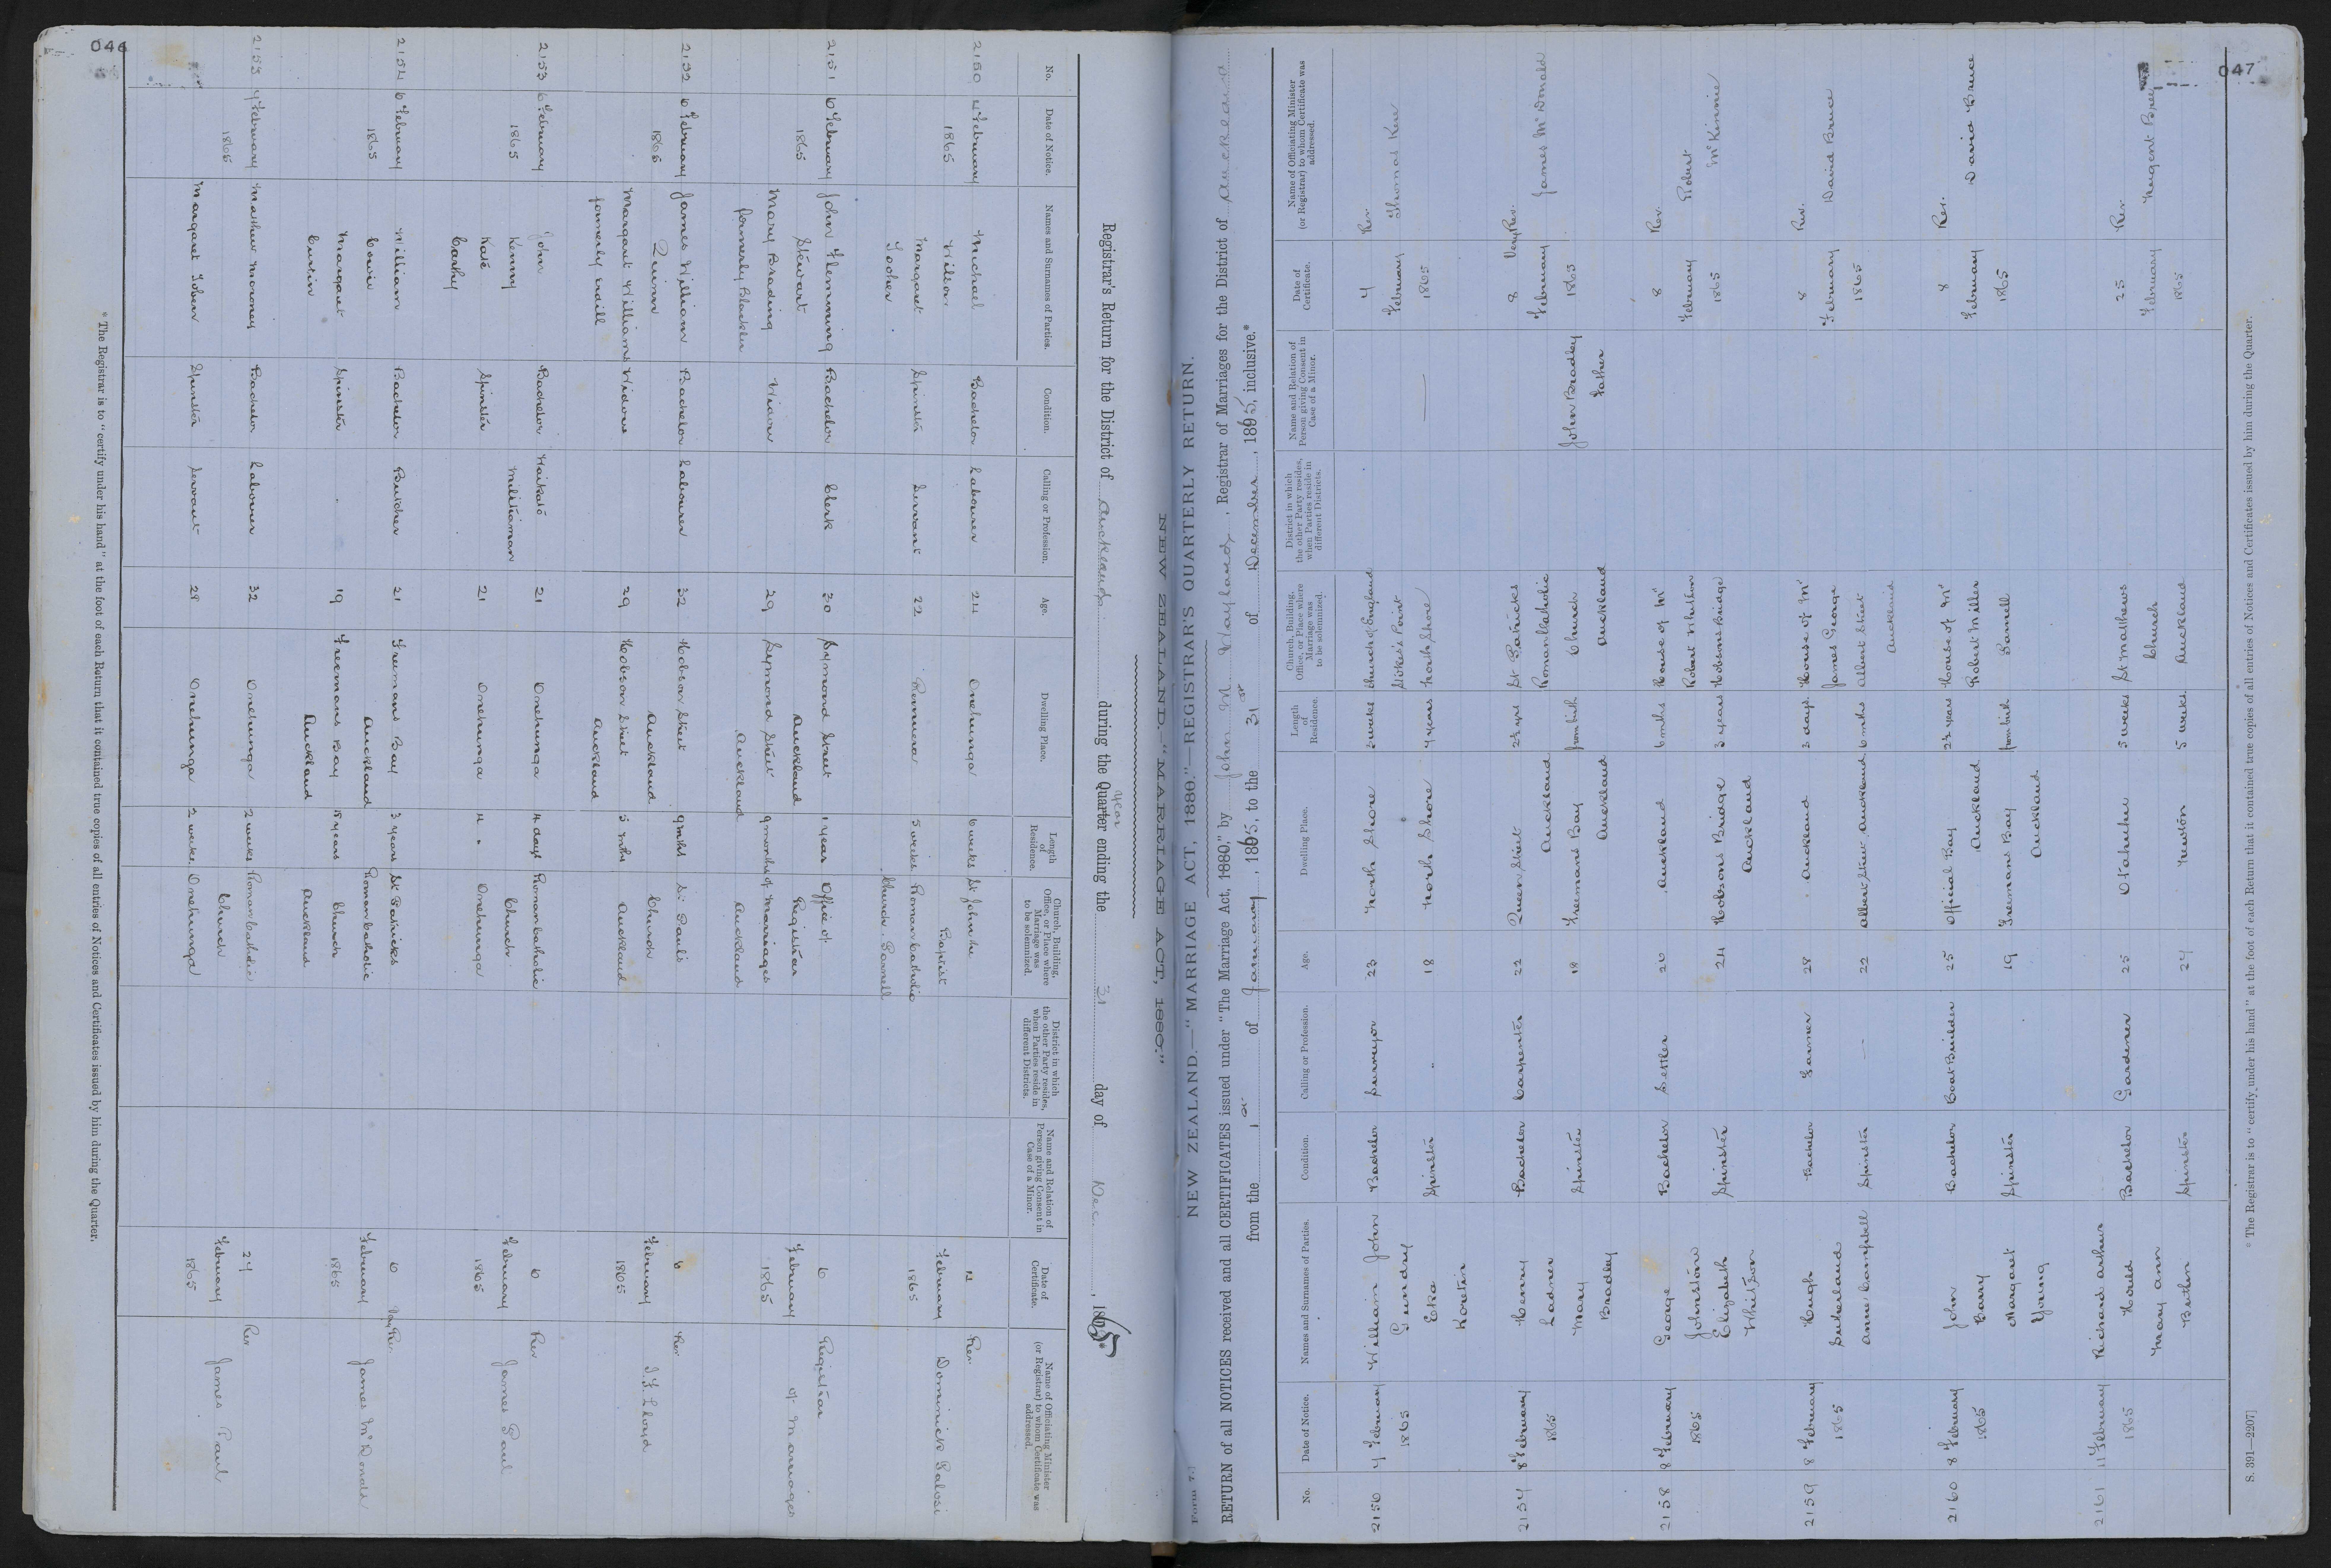 046
NEW ZEALAND.—"MARRIAGE ACT, 1880."
Registrar's Return for the District of Auckland during the Quarter year ending the 31 day of Dec. , 1865.
No.
Date of Notice.
Names and Surnames of Parties.
Condition.
Calling or Profession.
Age.
Dwelling Place.
Length of Residence.
Church, Building, Office, or Place where Marriage was to be solemnized.
District in which the other Party resides, when Parties reside in different Districts.
Name and Relation of Person giving Consent in Case of a Minor.
Date of Certificate.
Name of Officiating Minister (or Registrar) to whom Certificate was addressed.
2150 4 February 1865
Michael Bachelor Labourer 24 Onehunga 6 weeks St John the Baptist
Margaret Spinster Servant 22 Remuera 5 weeks Roman Catholic Church Parnell
February 1865 Rev. Dominick
2151 6 February 1865
John Flemming Stewart Bachelor Clerk 30 Symond Street Auckland 1 year Office of Registrar
Mary Brading formerly Blackler Widow 29 Symond Street Auckland 9 months of Marriages Auckland
6 February 1865 Registrar of Marriages
2152 6 February 1865
James William Quinn Bachelor Labourer 32 Hobson Street Auckland 9 mths St Paul's
Margaret Williams formerly Widow 29 Hobson Street Auckland 5 mths Church Auckland
6 February 1865 Rev J. F. Lloyd
2153 6 February 1865
John Kenny Bachelor Waikato Militiaman 21 Onehunga 4 days Roman Catholic Church
Kate Carthy Spinster 21 Onehunga 4 " Onehunga
6 February 1865 Rev James Paul
2154 6 February 1865
William Bachelor Butcher 21 Freemans Bay Auckland 3 years St Patricks Roman Catholic
Margaret Curtin Spinster 19 Freemans Bay Auckland years Church Auckland
6 February 1865 Very Rev. James McDonald
2155 7 February 1865
Mathew Moroney Bachelor Labourer 32 Onehunga 2 weeks Roman Catholic Church
Margaret Tobin Spinster Servant 28 Onehunga 2 weeks Onehunga
24 February 1865 Rev James Paul
* The Registrar is to "certify under his hand" at the foot of each Return that it contained true copies of all entries of Notices and Certificates issued by him during the Quarter.
047
Form 7.]
NEW ZEALAND.—"MARRIAGE ACT, 1880."—REGISTRAR'S QUARTERLY RETURN.
RETURN of all NOTICES received and all CERTIFICATES issued under "The Marriage Act, 1880," by John M Wayland, Registrar of Marriages for the District of Auckland
from the 1st of January, 1865, to the 31st of December, 1865, inclusive.*
No.
Date of Notice.
Names and Surnames of Parties.
Condition.
Calling or Profession.
Age.
Dwelling Place.
Length of Residence.
Church, Building, Office, or Place where Marriage was to be solemnized.
District in which the other Party resides, when Parties reside in different Districts.
Name and Relation of Person giving Consent in Case of a Minor.
Date of Certificate.
Name of Officiating Minister (or Registrar) to whom Certificate was addressed.
2156 7 February 1865
William John Gundry Bachelor Surveyor 23 North Shore 3 weeks Church of England Stokes's Point
Eka Koretin Spinster " 18 North Shore 4 years North Shore
— 7 February 1865 Rev. Thomas Kerr
2157 8 February 1865
Henry Ladner Bachelor Carpenter 22 Queen Street Auckland 2½ yrs St Patricks Roman Catholic
Mary Bradley Spinster 18 Freemans Bay Auckland from birth Church Auckland
John Bradley Father 8 February 1865 Very Rev. James McDonald
2158 8 February 1865
George Johnston Bachelor Settler 26 Auckland 6 mths House of Mr
Elizabeth Whitson Spinster 24 Hobsons Bridge Auckland 3 years Robert Whitson Hobsons Bridge
8 February 1865 Rev. Robert McKinnie
2159 8 February 1865
Hugh Sutherland Bachelor Farmer 28 Auckland 3 days House of Mr James George
Anne Campbell Spinster — 22 Albert Street Auckland 6 mths Albert Street Auckland
8 February 1865 Rev. David Bruce
2160 8 February 1865
John Barry Bachelor Boat Builder 25 Official Bay Auckland 2½ years House of Mr Robert Miller
Margaret Young Spinster 19 Freemans Bay Auckland from birth Parnell
8 February 1865 Rev. David Bruce
2161 11 February 1865
Richard Arthur Hould Bachelor Gardener 25 Otahuhu 5 weeks St Matthews Church
Mary Ann Butler Spinster 24 Newton 5 weeks Auckland
25 February 1865 Rev
* The Registrar is to "certify under his hand" at the foot of each Return that it contained true copies of all entries of Notices and Certificates issued by him during the Quarter.
S. 391—2207]